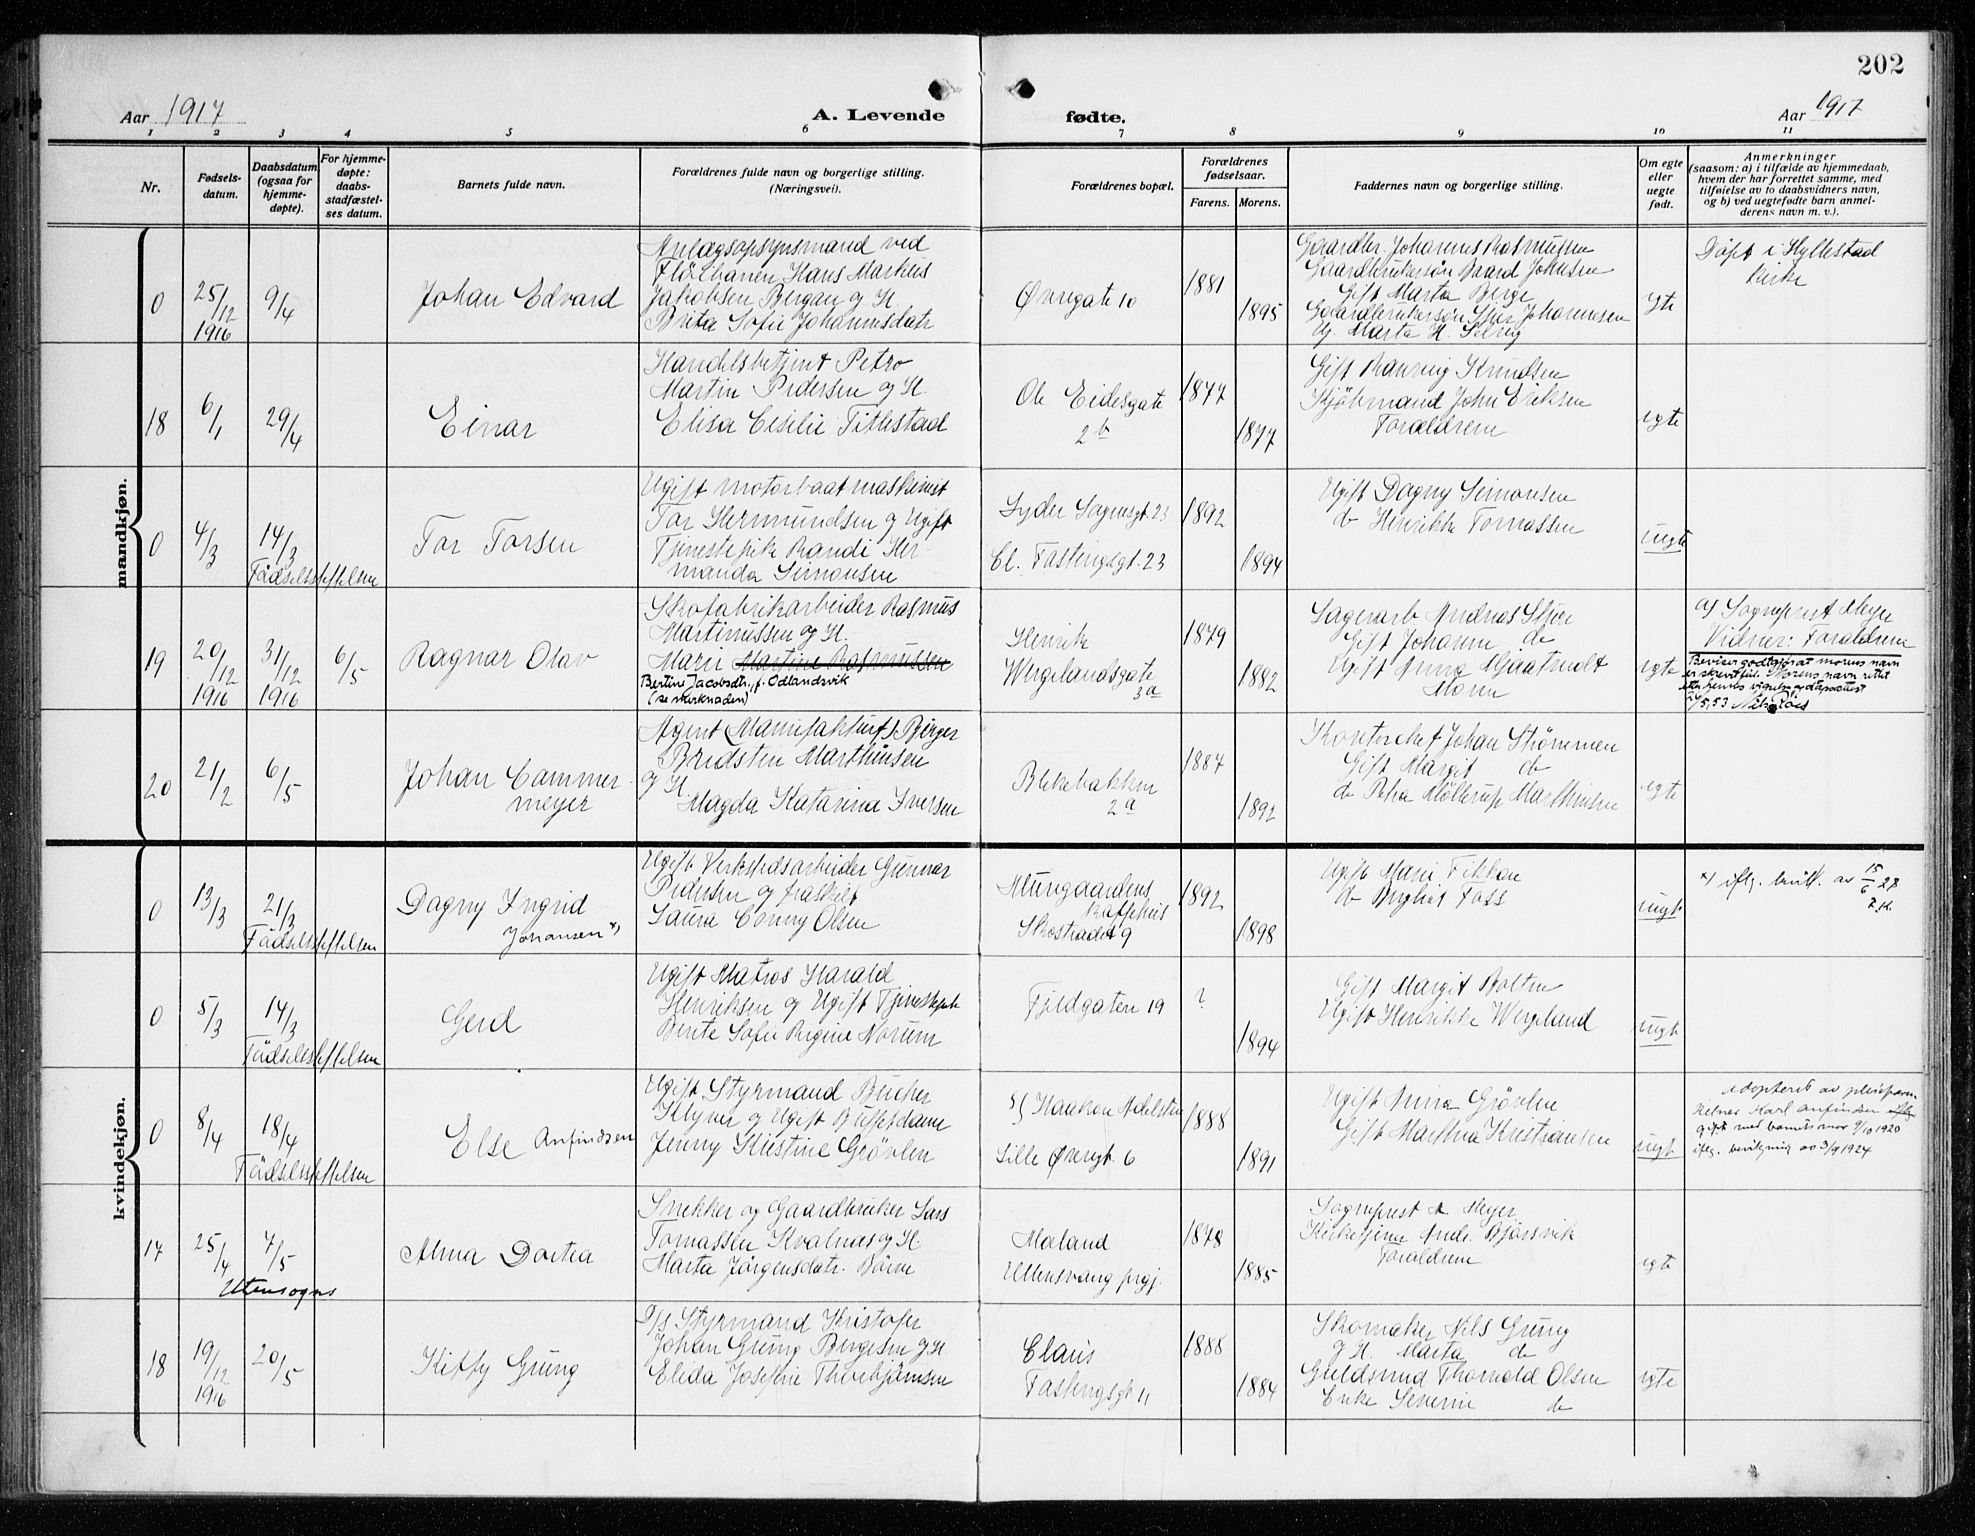 202
Aar 1917
A. Levende
fødte.
Aar 1917
1 2 3 4 5 6 7 8 9 10 11
Nr.
Fødsels-
datum.
Daabsdatum
(ogsaa for
hjemme-
døpte).
For hjemme-
døpte:
daabs-
stadfæstel-
ses datum.
Barnets fulde navn.
Forældrenes fulde navn og borgerlige stilling.
(Næringsvei).
Forældrenes bopæl.
Forældrenes
fødselsaar.
Farens. Morens.
Faddernes navn og borgerlige stilling.
Om egte
eller
uegte
født.
Anmerkninger
(saasom: a) i tilfælde av hjemmedaab,
hvem der har forrettet samme, med
tilføielse av to daabsvidners navn,
og b) ved uegtefødte barn anmel-
derens navn m. v.).
mandkjøn.
0
25/12
1916
9/4
Johan Edvard
Anlægsopsynsmand ved
Flöibanen Hans Markus
Jakobsen Bergan og H.
Brita Sofie Johannesdatr
Øvregate 10
1881
1895
Gaardbr. Johannes Rasmussen
Gaardbrukersön Baard Johnsen
Gift Marta Berge
Gaardbrukersön Johannesen
Ug. Marta H.
egte
Døpt i Hyllestad
kirke
18
6/1
29/4
Einar
Handelsbetjent Petro
Martin Pedersen og H.
Elisa Cesilie Titlestad
Ole Eidesgate
2b
1877
1877
Gift Ranveig Knudsen
Kjöbmand John Eriksen
Forældrene
egte
0
4/3
14/3
Fødselsseddelen
Tor Torsen
Ugift motorbaatmaskinist
Tor Hermundsen og Ugift
Tjenestepike Randi Her-
manda Simonsen
Lyder Sagensgt. 23
Cl. Fastingsgt. 23
1892
1894
Ugift Dagny Simonsen
do Henrikke Tomassen
uegte
19
20/12
1916
31/12
1916
6/5
Ragnar Olav
Skofabrikarbeider Rasmus
Martinussen og H.
Marie Martine Rasmussen
Bertine Jacobsdtr., f. Odlandsvik
(se skirknaden)
Henrik
Wergelandsgate
3a
1879
1882
Sagerarb Andreas
Gift Johanne do
Ugift Anna Mjaatvedt
Moren
egte
a) Sogneprest Meyer
Vidner: Forældrene
Beviser godtgjør at morens navn
er skrevet feil. Morens navn rettet
etter hennes vigsels og dåpsattest
20
21/2
6/5
Johan Cammer
meyer
Agent (Manufaktur) Birger
Bredsten Marthinsen
og H.
Magda Katarina Iversen
Blekebakken
2a
1887
1892
Kontorchef Johan Strömmen
Gift Margit do
do Petra Möllerup Marthinsen
egte
kvindekjøn.
0
13/3
21/3
Fødselsseddelen
Dagny Ingrid
Johansen x)
Ugift Verkstedsarbeider Gunnar
Pedersen og fraskilt
Laura Conny Olsen
Murgaardens
kaffehus
Skostrædet 9
1892
1898
Ugift Marie Fikkan
do Foss
uegte
x) iflg. bevill. av 15/6 27
0
5/3
14/3
Fødselsseddelen
Gerd
Ugift Matros Harald
Henriksen og Ugift Tjenestepike
Bente Sofie Regine Norum
Fjeldgaten 19
?
1894
Gift Margit Bolten
Ugift Henrikke Wergeland
uegte
0
8/4
18/4
Fødselsseddelen
Else Anfindsen
Ugift Styrmand Bucher
og Ugift Buffetdame
Jenny Kristine Grövlen
S/S Haakon Adelsten
Lille Øvregt. 6
1888
1891
Ugift Anna Grövlen
Gift Marthea Kristiansen
uegte
adopteret av
Karl Anfindsen
gift med barnets mor 9/10 1920
iflg. bevilgning av 3/9 1924
17
25/4
7/5
Utensogns
Alma Dortea
Snekker og Gaardbruker Lars
Tomassen Kvalnas og H
Marta Jörgensdatr. Börve
Maland
Ullensvang prgj.
1878
1885
Sogneprest Meyer
Kirketjener Andr. Bjørsvik
Forældrene
egte
18
19/12
1916
20/5
Kitty Grung
D/S Styrmand Kristofer
Johan Grung Bergesen og H
Elida Josefine Thorbjörnsen
Claus
Fastingsgt 11
1888
1884
Skomaker Nils Grung
og H. Marta do
Guldsmed Thorvald Olsen
Enke Severine do
egte